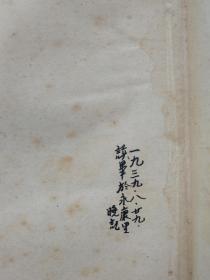 一九三九·八·廿九·
讀畢於永康里
曉記